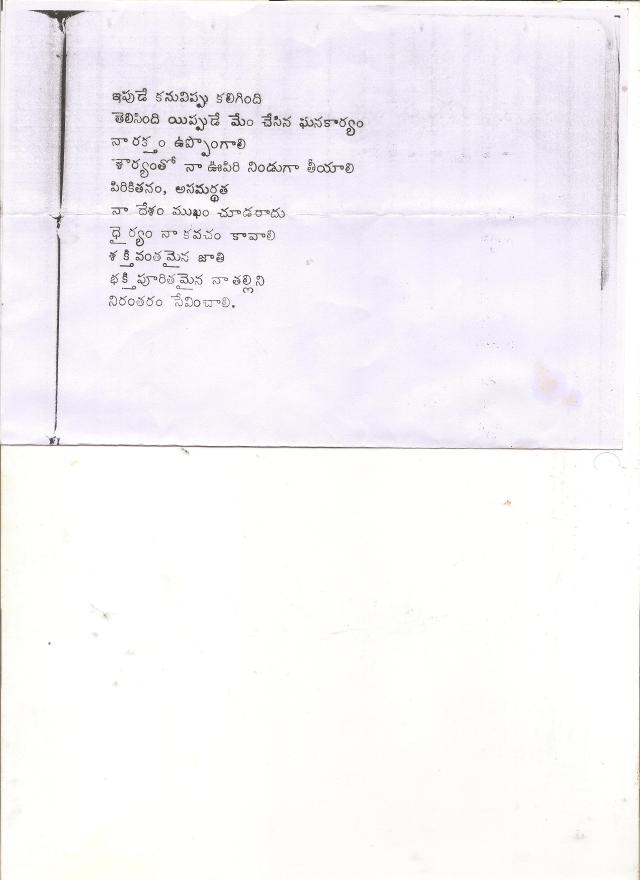 ఇపుడే కనువిప్పు కలిగింది
తెలిసింది యిప్పుడే మేం చేసిన ఘనకార్యం
నా రక్తం ఉప్పొంగాలి
శౌర్యంతో నా ఊపిరి నిండుగా తీయాలి
పిరికితనం, అసమర్థత
నా దేశం ముఖం చూడరాదు
ధైర్యం నా కవచం కావాలి
శక్తివంతమైన జాతి
భక్తిపూరితమైన నా తల్లిని
నిరంతరం సేవించాలి.